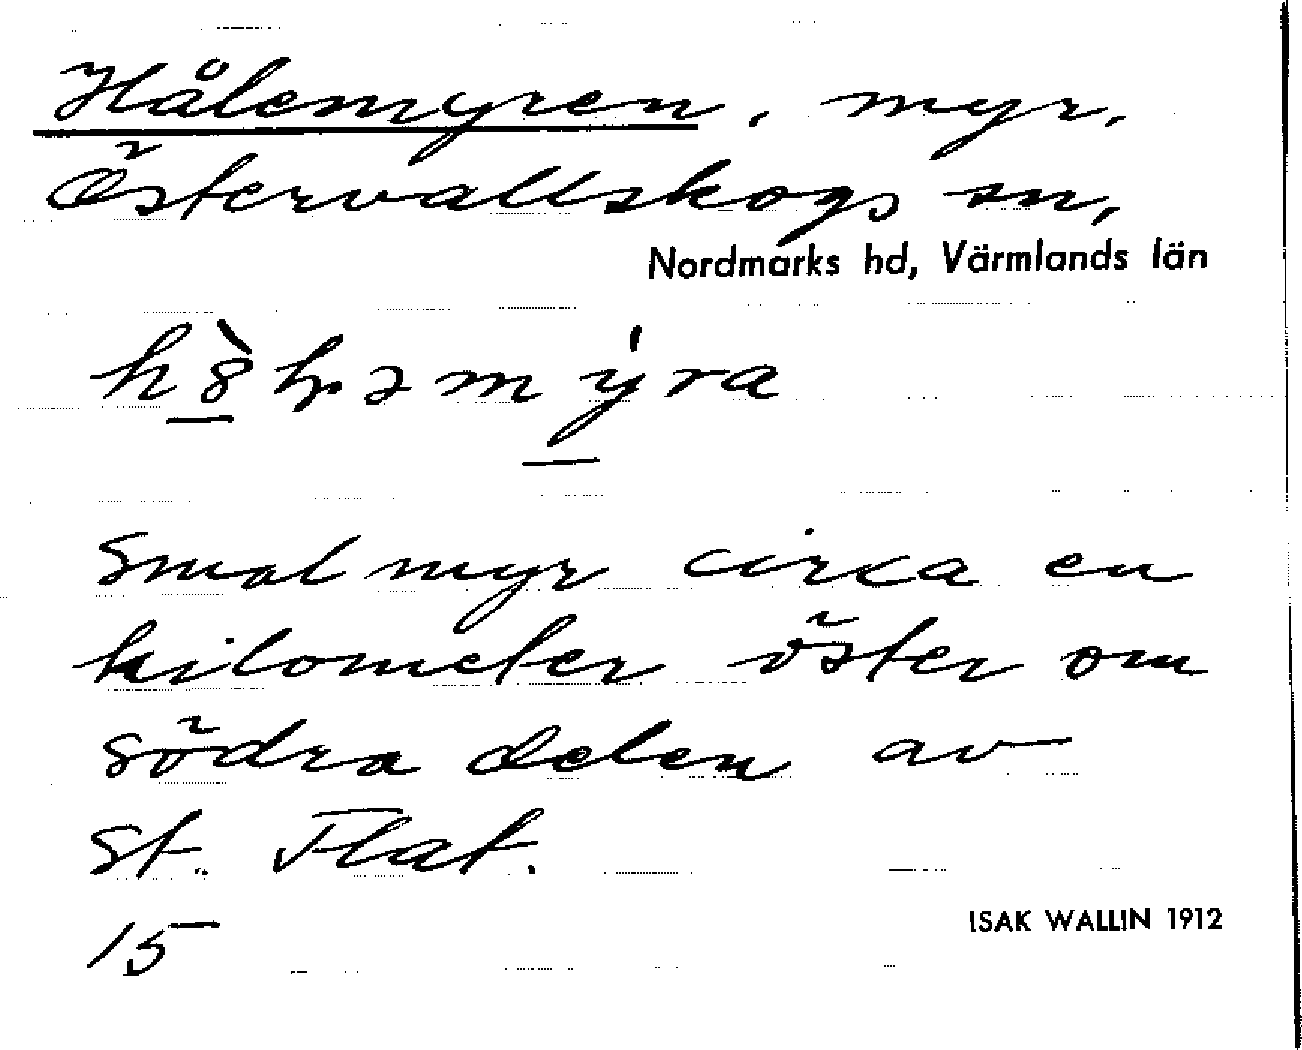 Hålemyren, myr,
Östervallskogs sn,
Nordmarks hd, Värmlands län
Smal myr circa en
kilometer öster om
södra delen av
St. Flat.
15
ISAK WALLIN 1912